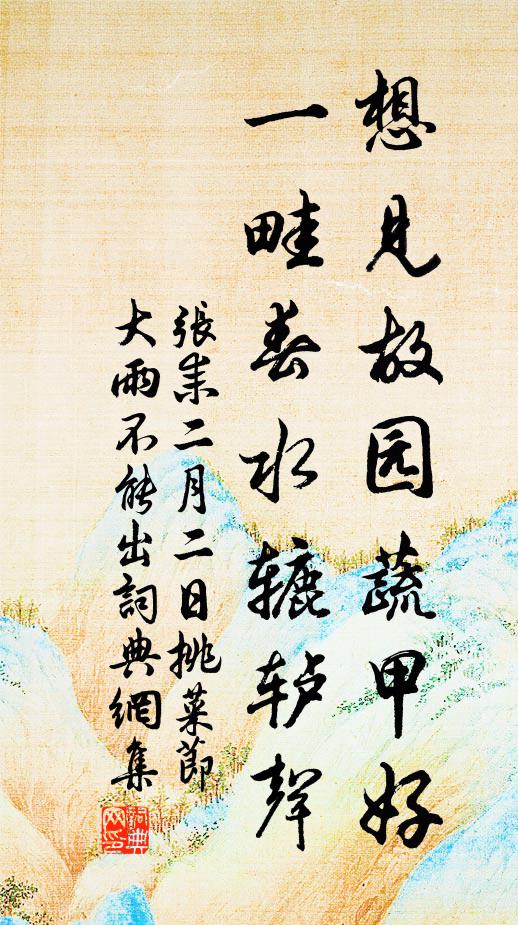 想见故园蔬甲好
一畦春水辘轳聲
張耒二月二日挑菜節
大雨不能出詞典網集
詞典網印